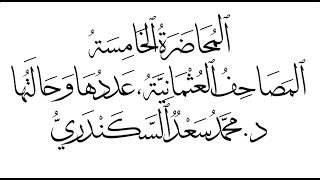 المُحَاضَرَةُ الخَامِسَةُ
المَصَاحِفُ العُثْمَانِيَّةُ، عَدَدُهَا وَحَالَتُهَا
د. مُحَمَّد سَعْدُ السَّكَنْدَرِيُّ